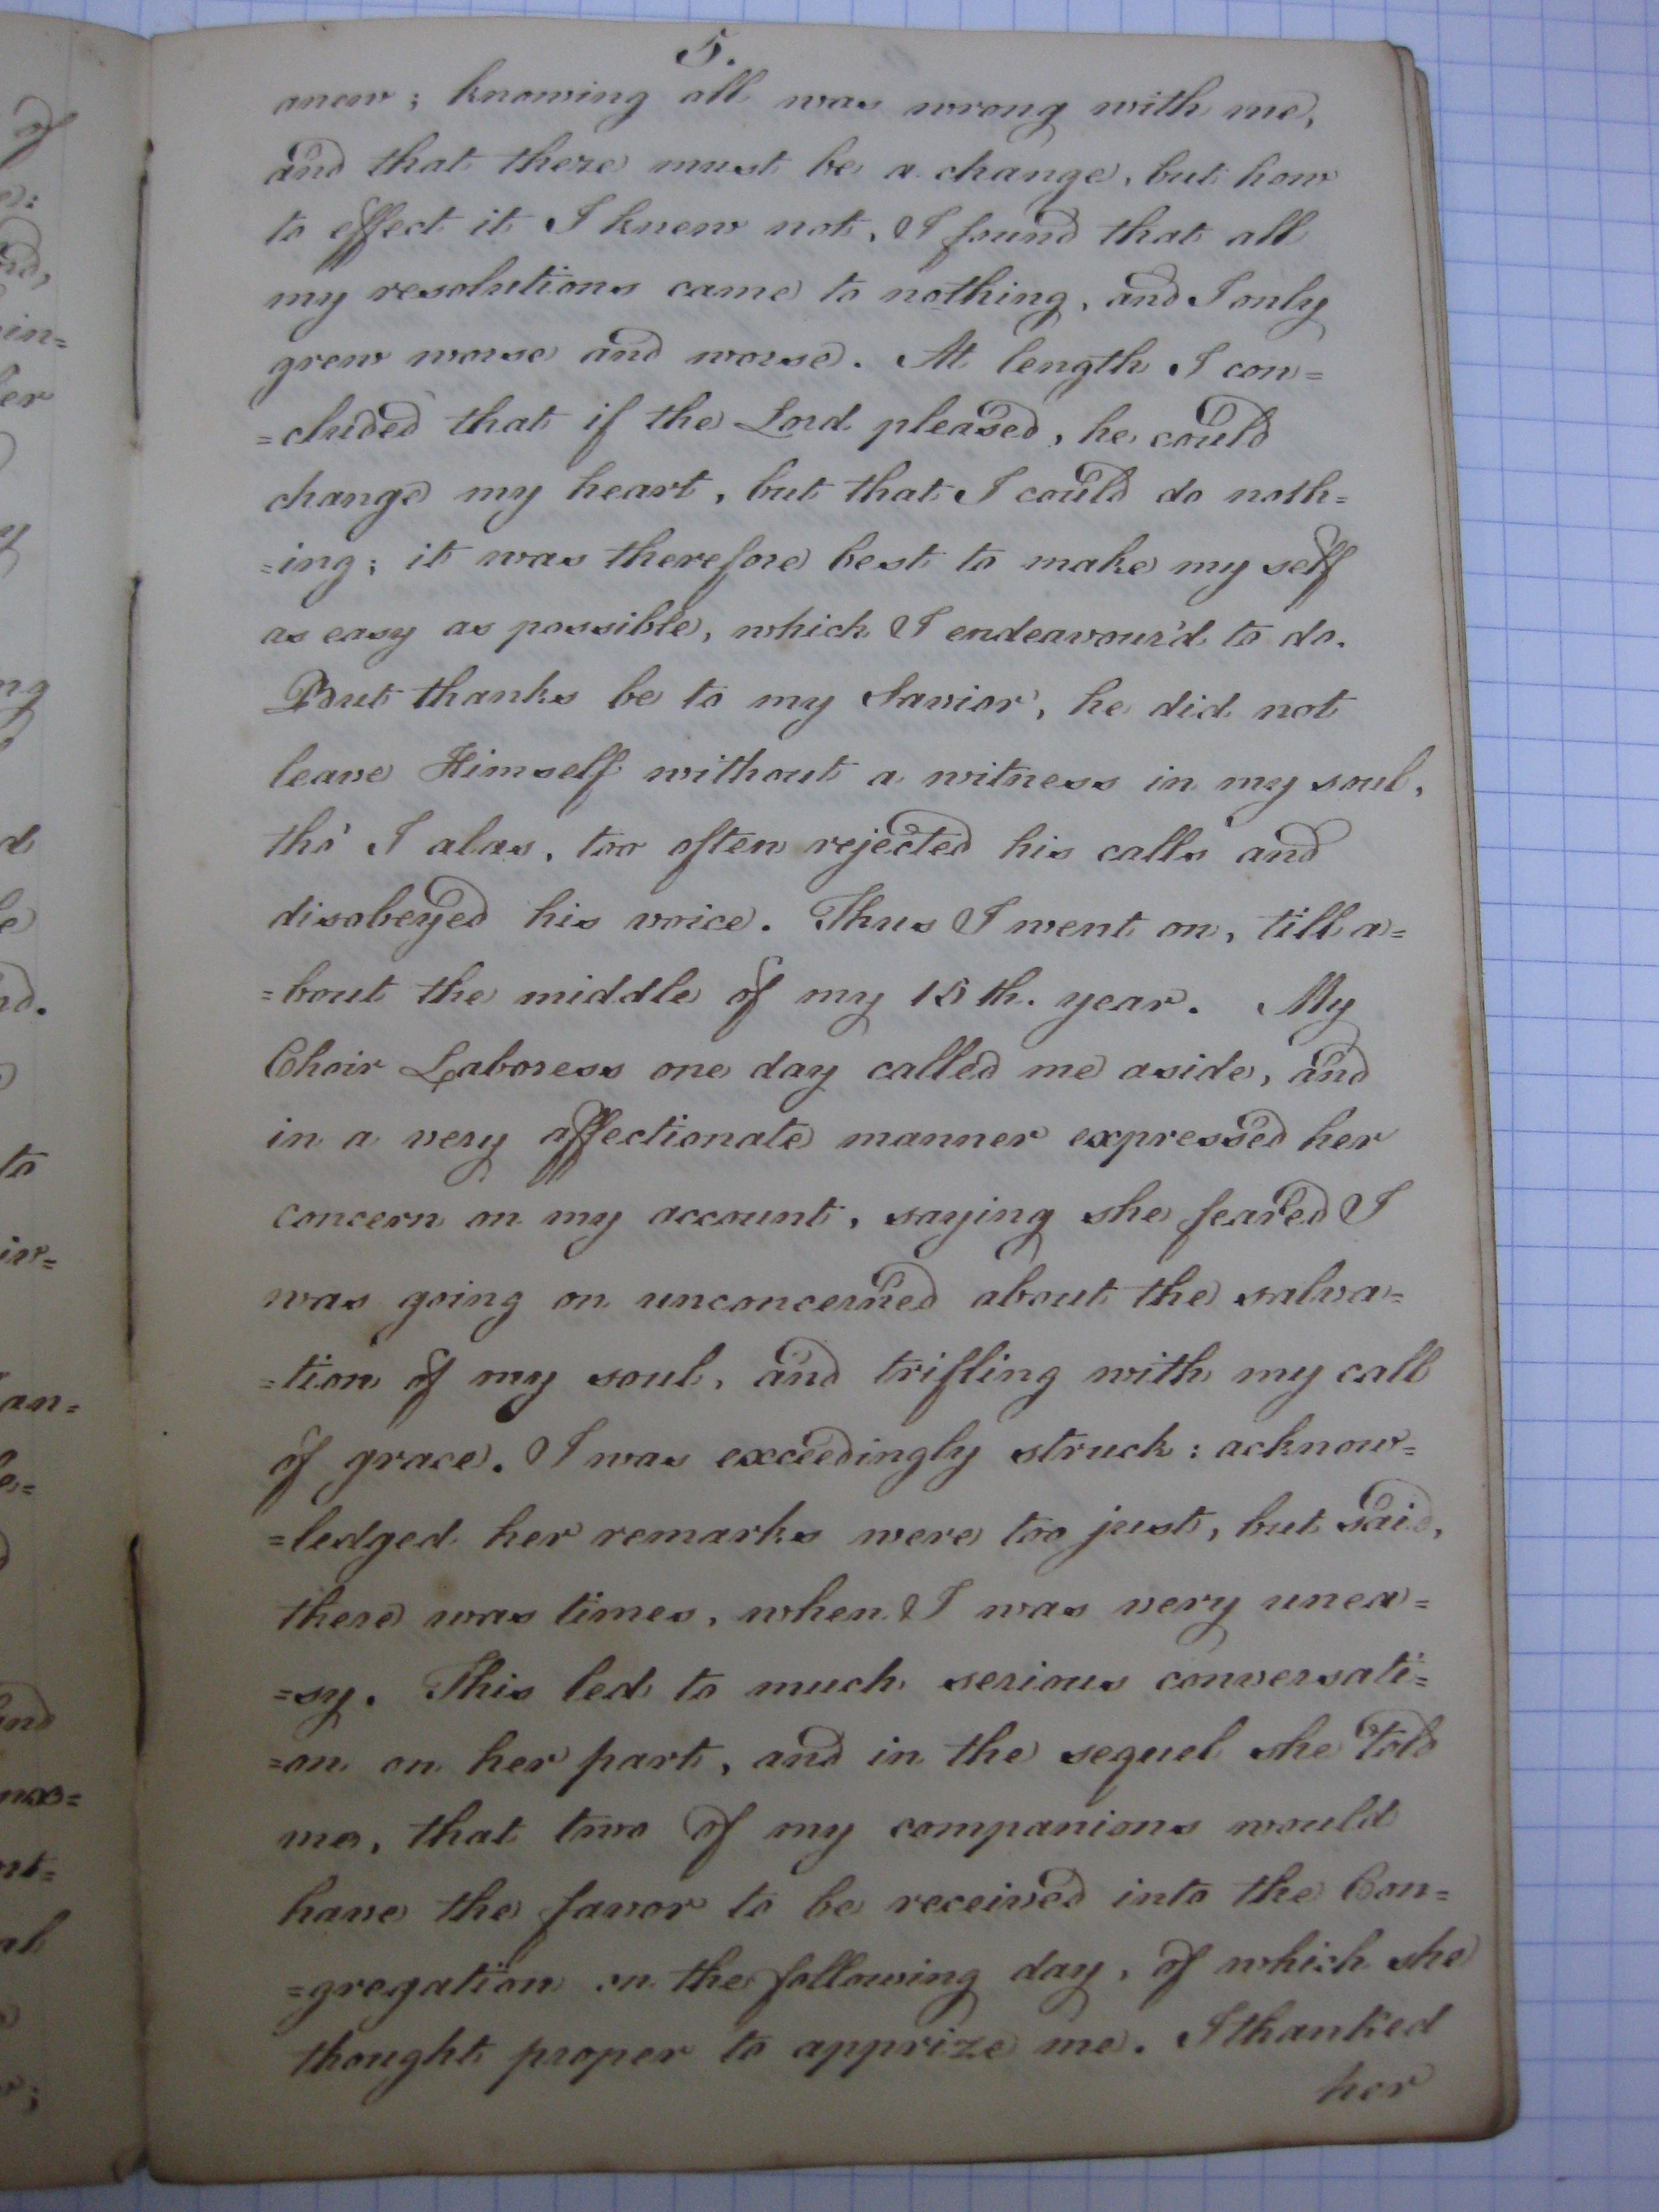 5.
anew; knowing all was wrong with me,
and that there must be a change, but how
to effect it I knew not, I found that all
my resolutions came to nothing, and I only
grew worse and worse. At length I con=
=cluded that if the Lord pleased, he could
change my heart, but that I could do noth=
=ing; it was therefore best to make my self
as easy as possible, which I endeavour'd to do.
But thanks be to my Savior, he did not
leave Himself without a witness in my soul,
tho' I alas, too often rejected his calls and
disobeyed his voice. Thus I went on, till a=
=bout the middle of my 15th. year. My
Choir Laboress one day called me aside, and
in a very affectionate manner expressed her
concern on my account, saying she feared I
was going on unconcerned about the salva=
=tion of my soul, and trifling with my call
of grace. I was exceedingly struck: acknow=
=ledged her remarks were too just, but said,
there was times, when I was very unea=
=sy. This led to much serious conversati=
=on on her part, and in the sequel she told
me, that two of my companions would
have the favor to be received into the Con=
=gregation on the following day, of which she
thought proper to apprize me. I thanked
her